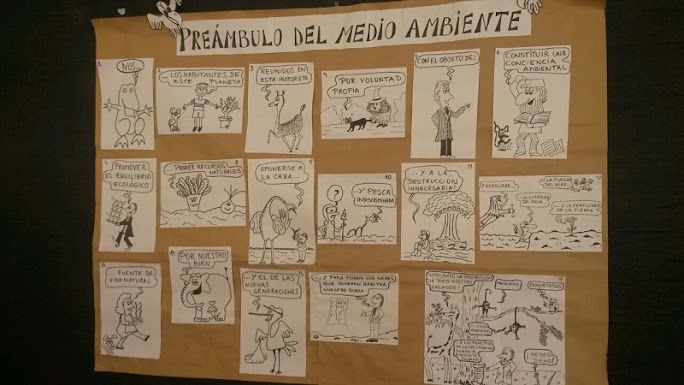 PREÁMBULO DEL MEDIO AMBIENTE
1
NOS...
...LOS HABITANTES DE
ESTE PLANETA
3
REUNIDOS EN
ESTA HISTORIETA
4
POR VOLUNTAD
PROPIA
CON EL OBJETO DE:
6
CONSTITUIR UNA
CONCIENCIA
AMBIENTAL
PROMOVER
EL EQUILIBRIO
ECOLÓGICO
8
RECURSOS
NATURALES
9
OPONERSE A
LA CAZA...
10
?
...Y PESCA
INDISCRIMINADA
11
...Y A LA
DESTRUCCIÓN
INNECESARIA!
12
ASEGURAR...
LA PUREZA
DEL AIRE...
LA LIMPIEZA
DEL AGUA...
...Y LA FERTILIDAD
DE LA TIERRA
...FUENTE DE
VIDA NATURAL
POR NUESTRO
BIEN
15
...Y EL DE LAS
NUEVAS
GENERACIONES
...Y PARA TODOS LOS SERES
QUE QUIERAN HABITAR
NUESTRO SUELO
17
INVOCANDO LA PROTECCIÓN
DE TODO NUESTRO
CREADOR!
HEMOS
DICHO!